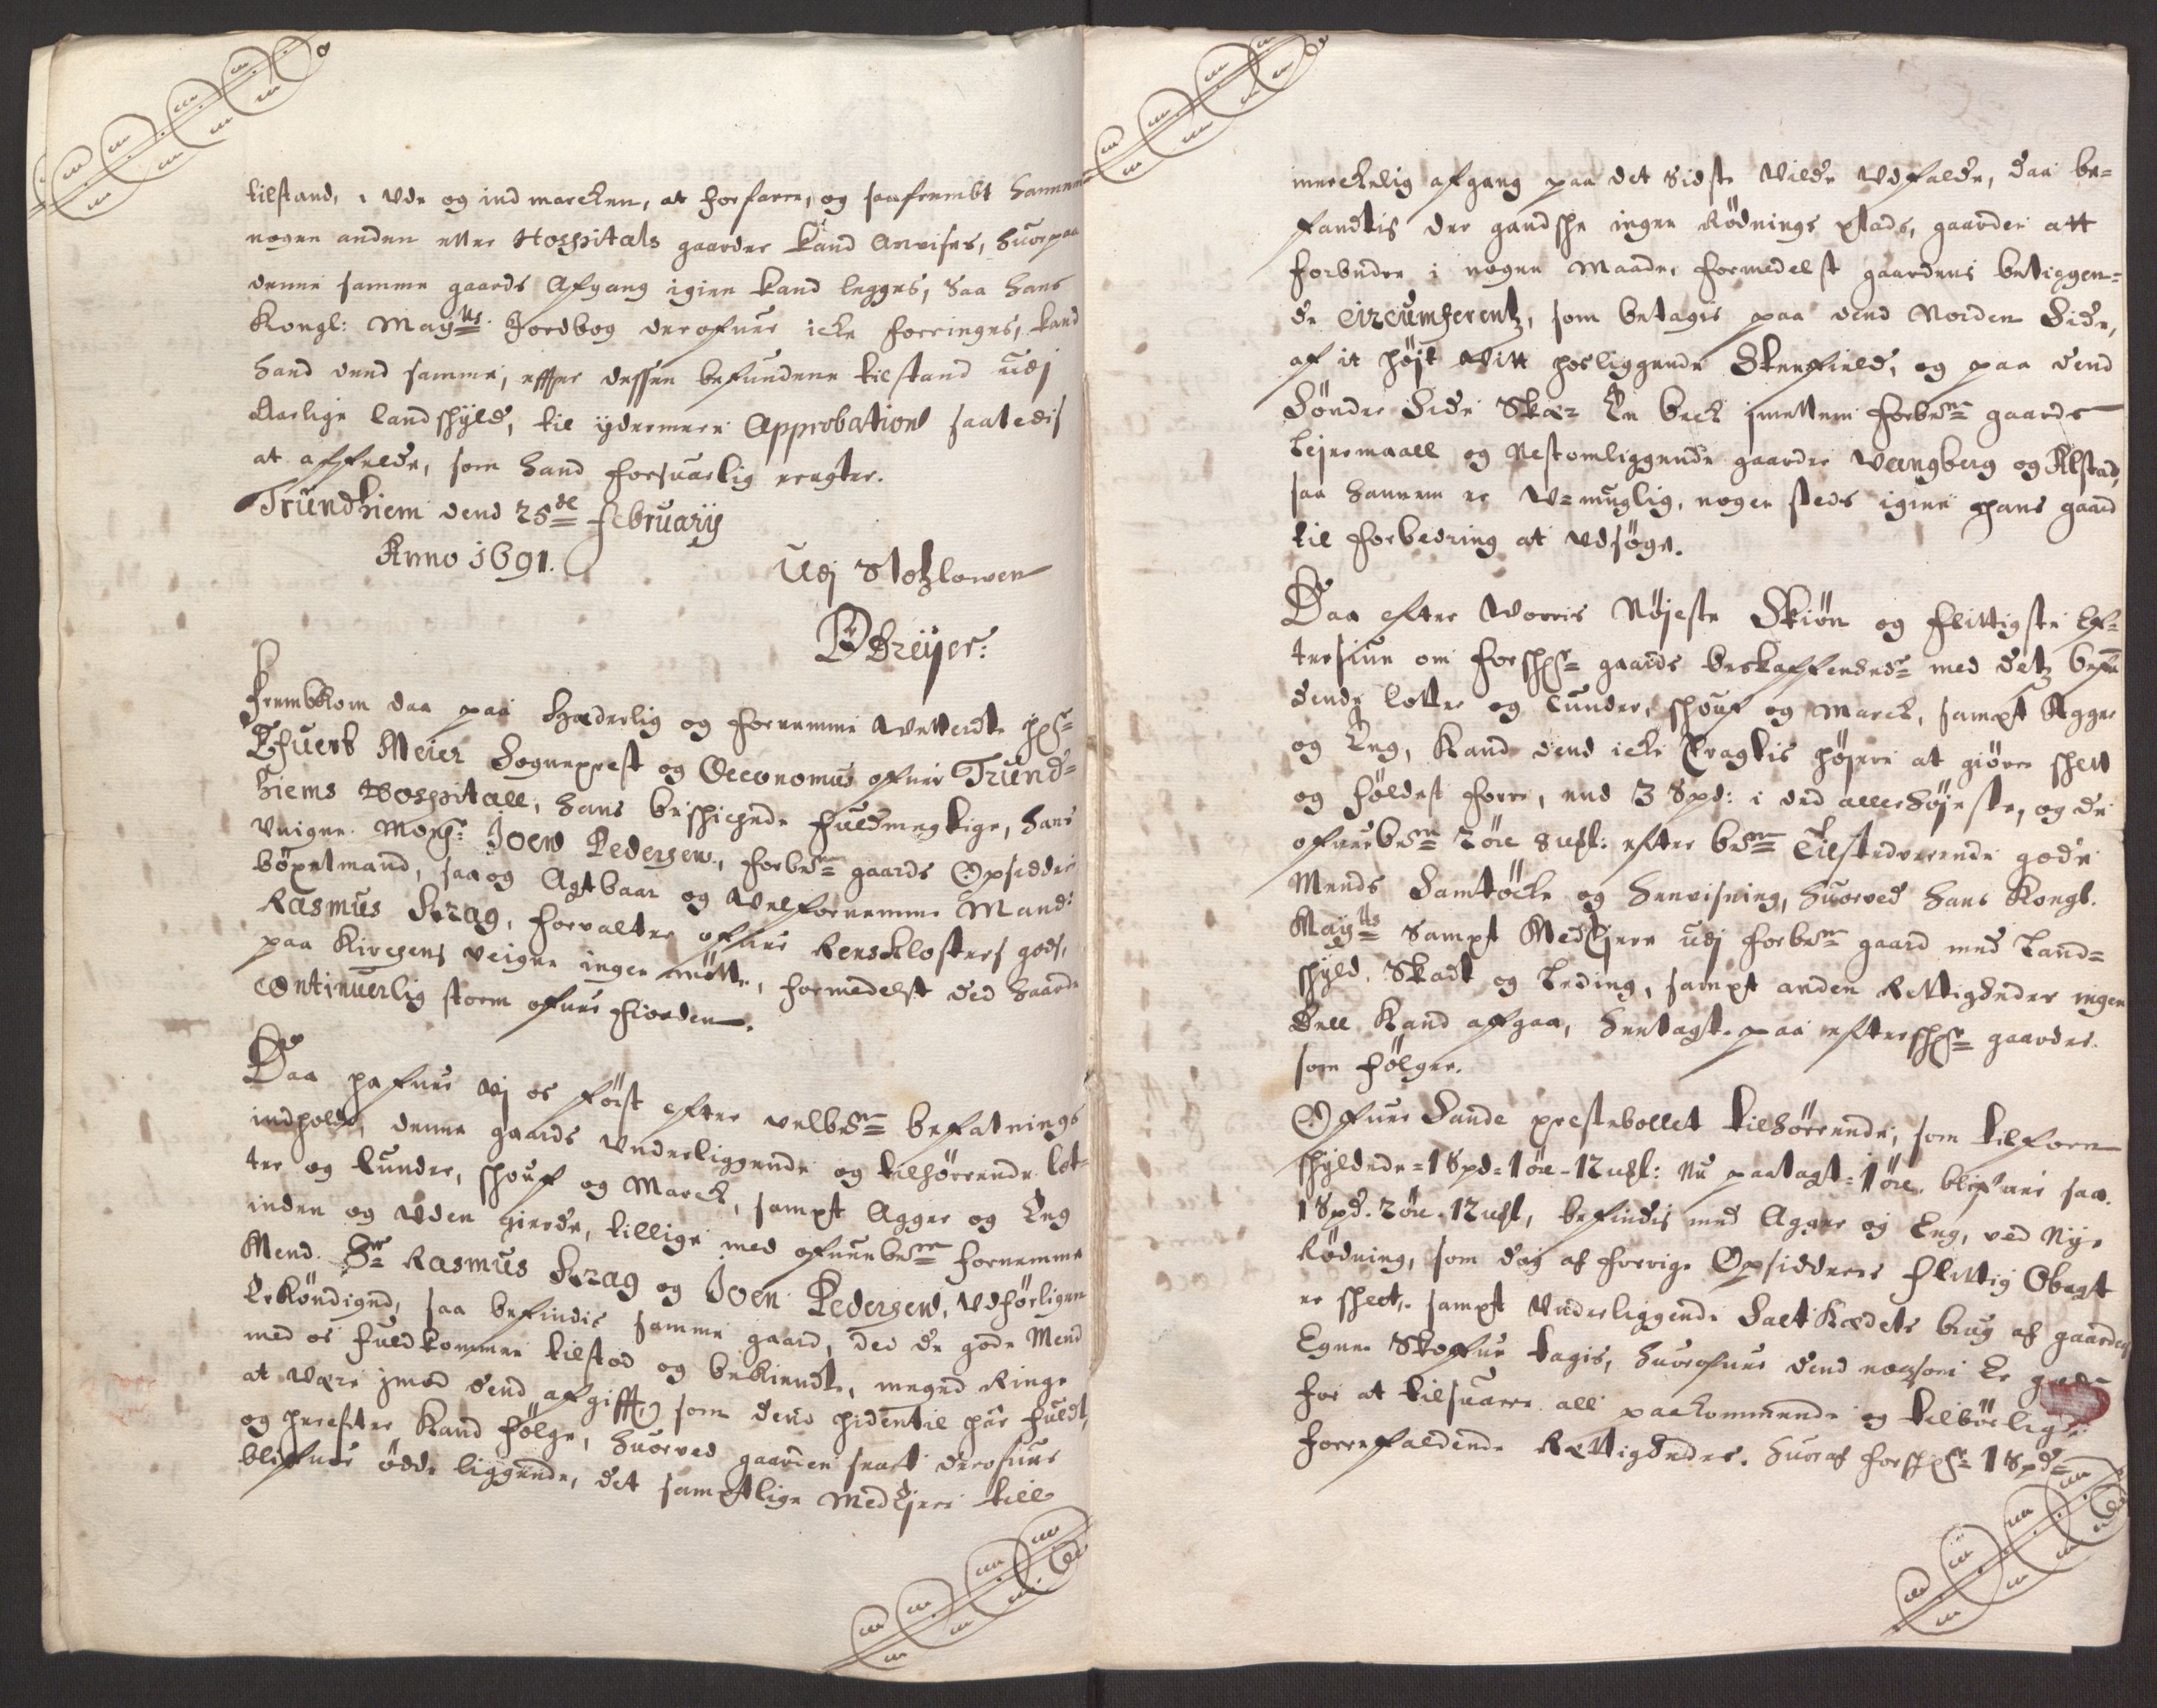 tilstand, i Ude og ind marcken, at forfarre, og saafrembt hannem
nogen anden eller Hospitals gaarder kand Anvises, huorpaa
denne samme gaards Afgang igien kand legges, Saa hans
Kongl: Mayts. Jordbog derofuer icke forringes, kand
hand dend samme, effter dessen befundene tilstand udj
Aarlige landschyld, til ydermere Approbation saaledis
at affælde, som hand forsuarlig eragter.
Trundhiem dend 25de february
Anno 1691.
Udj Stoltz lowen
DDreÿer:
Frembkom daa paa Hæderlig og fornemme Welterdte
Efuert Meier Sognepræst og Oeconomus ofuer Trund-
hiems Hospitall, hans beschichede fuldmegtige, hans
Veigne. Mons: Joen Pedersen, forbem: gaards Opsidder
böxelmand, saa og Agtbaar og Welfornemme Mand:
Rasmus Krag, forvalter ofuer Rensklosters gods,
paa Kirchens veigne ingen mötte, formedelst ded haarde
continuerlig storm ofuer fiorden.
Daa hafuer vj os först efter velbem: befalnings
indhold, denne gaards Underliggende og tilhörrende lot-
ter og lunder, schouf og Marck, sampt Agger og Eng
inden og Uden gierde, tillige med ofuenbem: fornemme
Mend. Sr: Rasmus Krag og Joen Pedersen, Udförligen
Erköndiged, saa befindis samme gaard, ded de gode Mend
med os fuldkommen tilstod og bekiendte, meged Ringe
at Være jmod dend afgifft, som dend hidentil har fuldt,
og herefter Kand fölge, huorved gaarden snart derofuer
blifuer ödde liggende, det samptlige Medejere till
merckelig afgang paa det Sidste Vilde Udfalde, daa be-
fandtis der gandsche ingen Rödnings plads, gaarden att
forbedre i nogen Maade, formedelst gaardens beliggen-
de Circumferentz, som betagis paa dend Norden Side,
af it höjt Vitt hosliggende Steenfield, og paa dend
Sönder Side Skær En beck jmellem forbem: gaards
Lejermaall og Nestomliggende gaarder Vangberg og Alstad,
saa hannem er U-muglig, nogen steds igien hans gaard
til forbedring at Udsöge.
Daa efter Worris Nöjeste Skiön og flittigste Ef-
tersiun om forschr: gaards beskaffenhed med detz befin
dende Lotter og Lunder, schouf og Marck, sampt Agger
og Eng, Kand dend icke Eragtis höjere at giöre schell
og földest forre, end 3 Spd: i ded allerhöjeste, og de
ofuerbem: 2 öre 8 mkl: efter bem: Tilstedverende gode
Mends Samtöcke og Henvisning, huorved hans Kongl.
Mayts Sampt MedEjere udj forbem: gaard med Land-
schyld. Skadt og Leding, sampt anden Rettigheder ingen
Dell Kand afgaa, henlagt paa efterschr: gaarder.
som fölger.
Ofuer Sande prestebollet tilhörrende, som tilforn
schyldede = 1 Spd = 1 öre - 12 mkl: Nu paalagt = 1 öre, blifuer saa.
1 Spd. 2 öre. 12 mkl, befindis med Agger og Eng, ved Nye
Rödning, som dag af forrige Opsidderes flittig Obagt
er scheet, sampt Underliggende Salt Kædels brug af gaardens
Egne Skoffue tagis, huorofuer dend noch som Er gode
for at tilsuarre all paakommende og tilbörlige
forrefaldende Rettigheder. huoraf forschr: 1 Spd=